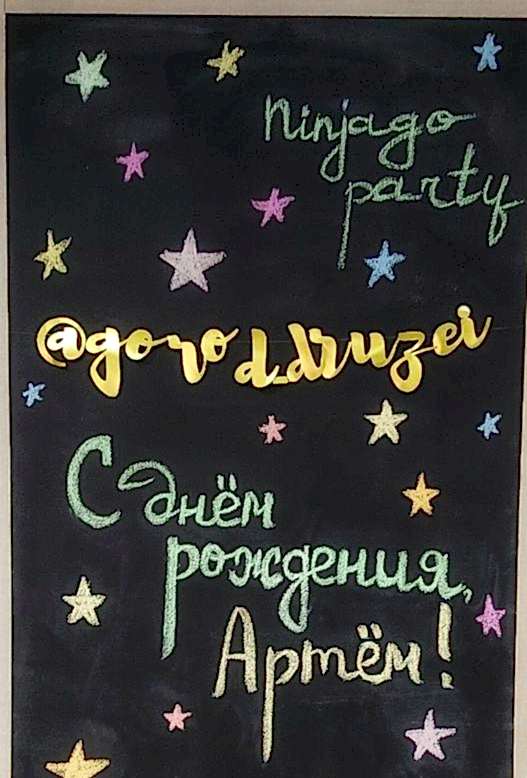 Ninjago
party
@gorod_druzei
С днём
рождения,
Артём!